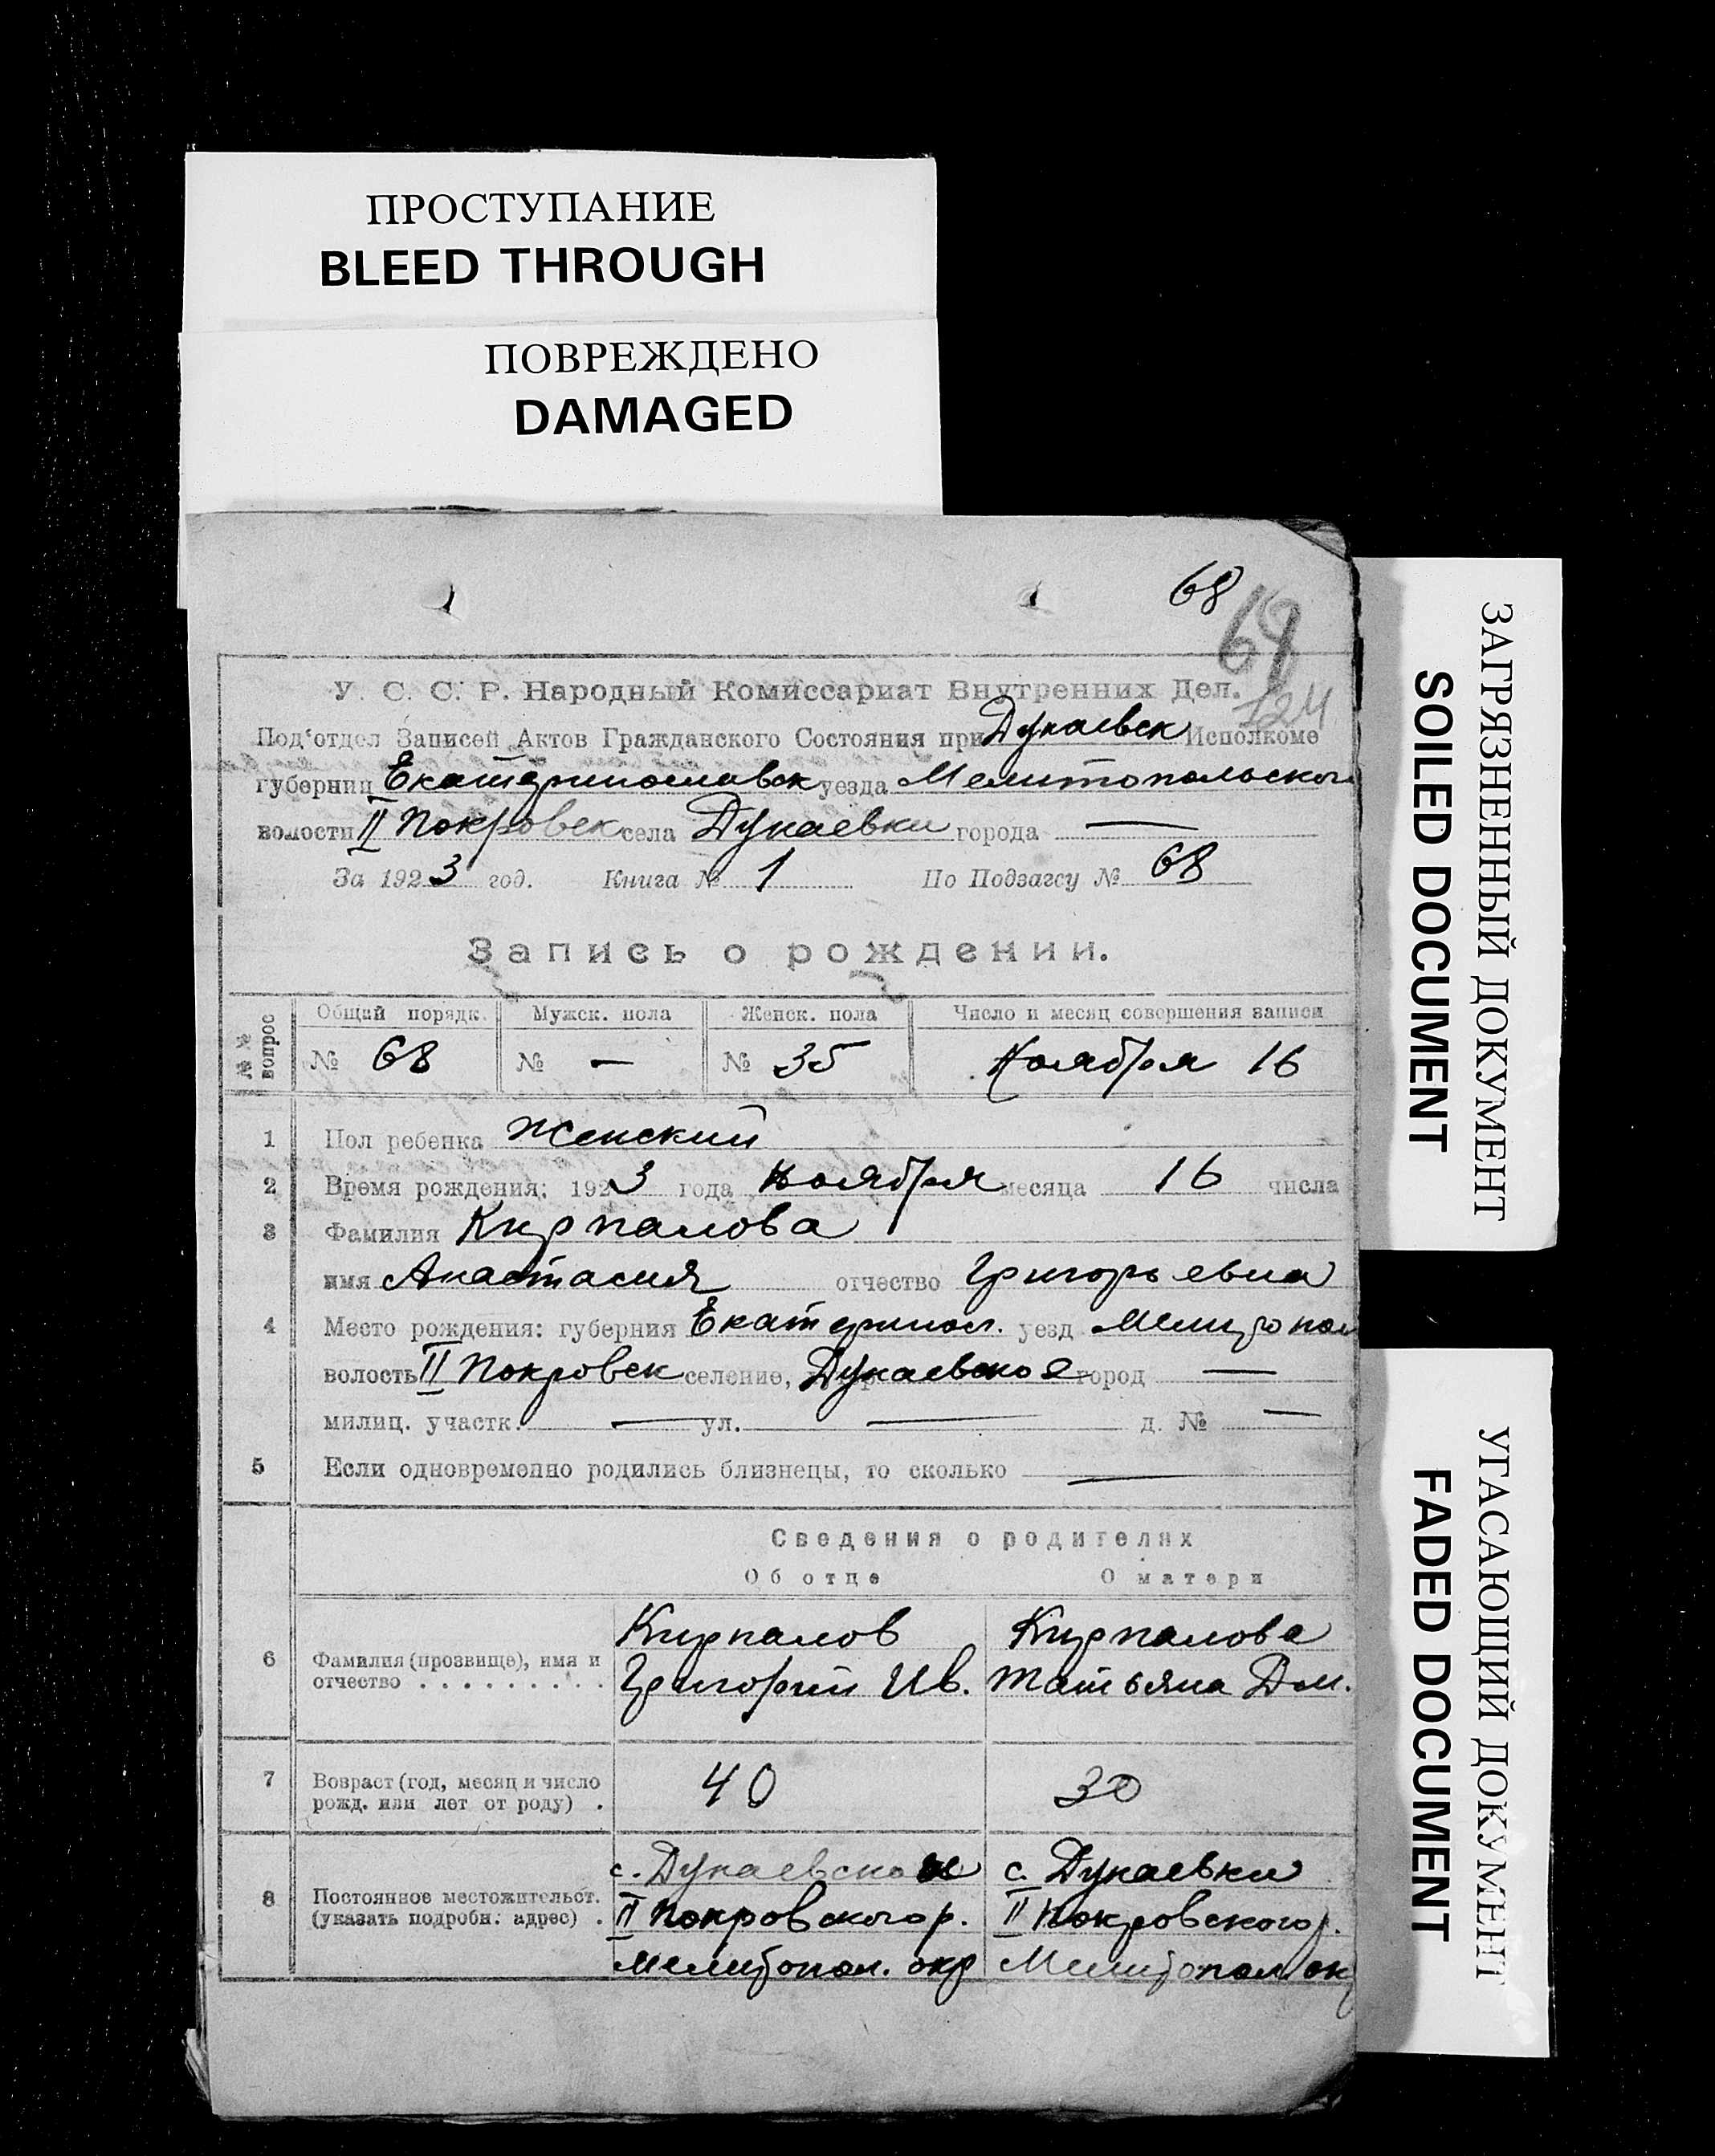 ПРОСТУПАНИЕ
BLEED THROUGH
ПОВРЕЖДЕНО
DAMAGED
68
69
124
У. С. С. Р. Народный Комиссариат Внутренних Дел.
Под'отдел Записей Актов Гражданского Состояния при Дунаевск Исполкоме
губернии Екатеринославск уезда Мелитопольского
волости II Покровск села Дунаевки города —
За 1923 год. Книга № 1 По Подзагсу № 68
Запись о рождении.
№№ вопрос
Общий порядк. Мужск. пола Женск. пола Число и месяц совершения записи
№ 68 № — № 35 Ноября 16
1 Пол ребенка Женский
2 Время рождения: 1923 года Ноября месяца 16 числа
3 Фамилия Кирпалова
имя Анастасия отчество Григорьевна
4 Место рождения: губерния Екатеринос. уезд Мелитопол
волость II Покровск селение, Дунаевское город —
милиц. участк. — ул. — д. № —
5 Если одновременно родились близнецы, то сколько —
Сведения о родителях
Об отце О матери
6 Фамилия (прозвище), имя и отчество . . . . . . . . . .
Кирпалов Кирпалова
Григорий Ив. Татьяна Дм.
7 Возраст (год, месяц и число рожд. или лет от роду) .
40 30
8 Постоянное местожительст. (указать подробн. адрес) .
с. Дунаевское с. Дунаевки
II Покровского р. II Покровского р.
Мелитопол. окр Мелитопол. ок
ЗАГРЯЗНЕННЫЙ ДОКУМЕНТ
SOILED DOCUMENT
УГАСАЮЩИЙ ДОКУМЕНТ
FADED DOCUMENT